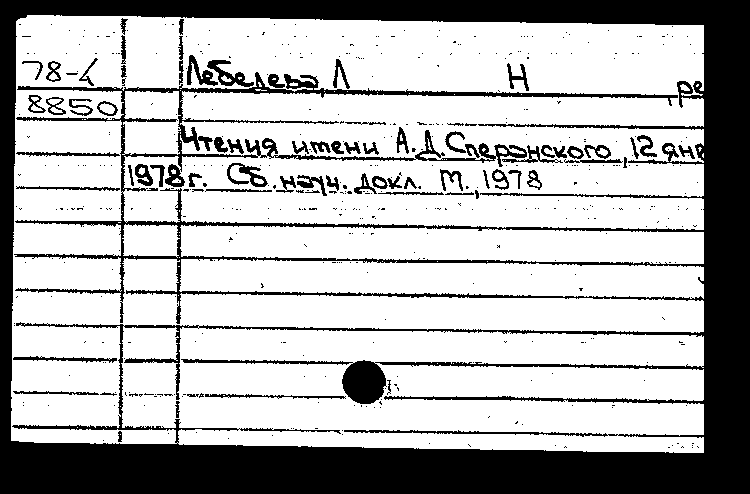 78-4 Лебедева, Л Н , ре
8850
Чтения имени А.Д.Сперанского, 12 янв
1978г. Сб. науч. докл. М., 1978